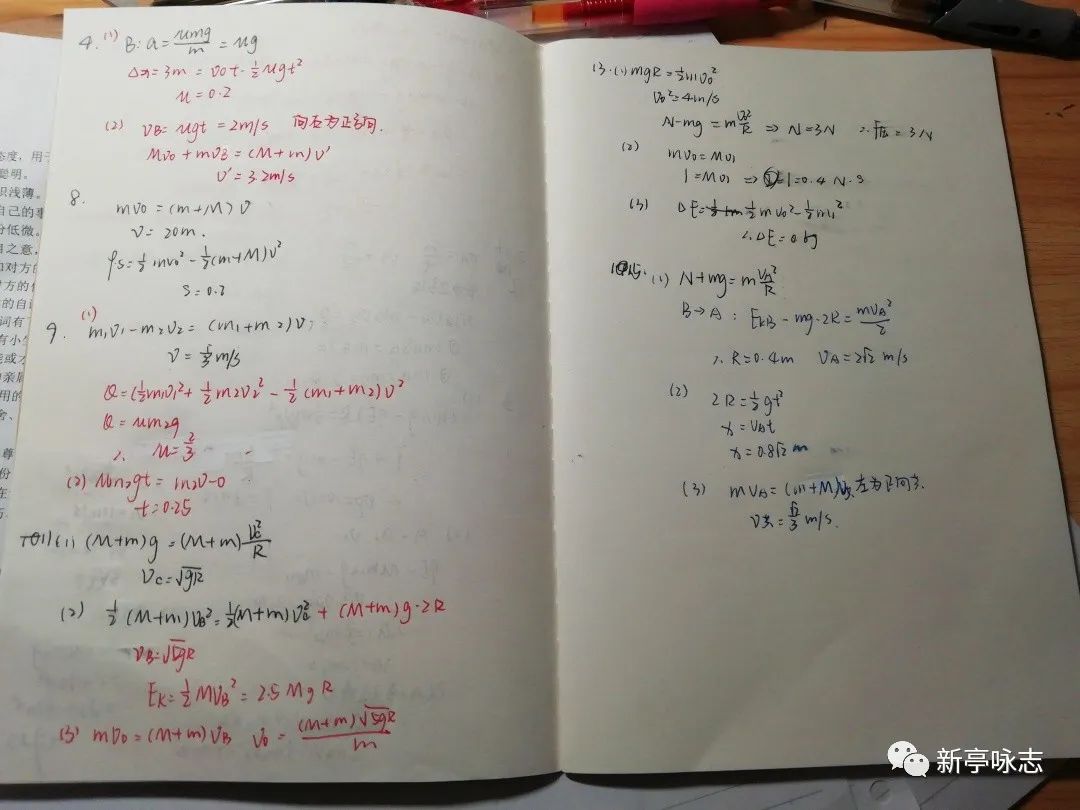 态度，用于
聪明。
识浅薄。
自己的事
份低微。
目之意，
和对方的
对方的
的自
词有
有小
能或才
亲属
用的
舍、
尊
份
在
4.(1) B: a = μmg/m = μg
Δx = 3m = v0t - 1/2 μgt²
μ = 0.2
(2) vB = μgt = 2m/s 向右为正方向.
Mv0 + mvB = (M+m)v'
v' = 3.2m/s
8.
mv0 = (m+M)v
v = 20m.
fs = 1/2 mv0² - 1/2 (m+M)v²
s = 0.2
9. (1)
m1v1 - m2v2 = (m1+m2)v
v = 1/3 m/s
Q = (1/2 m1v1² + 1/2 m2v2² - 1/2 (m1+m2)v²
Q = μm2g
∴ μ = 2/3
(2) μm2gt = m2v-0
t = 0.25
(1) (M+m)g = (M+m) vc²/R
vc = √gR
(2) 1/2 (M+m)vB² = 1/2 (M+m)vc² + (M+m)g·2R
vB = √5gR
Ek = 1/2 MvB² = 2.5MgR
(3) mv0 = (M+m)vB v0 = (M+m)√5gR/m
13.(1) mgR = 1/2 mv0²
v0² = 4m/s
N-mg = m v0²/R ⇒ N = 3N ∴ F压 = 3N
(2)
mv0 = Mv1
I = Mv1 ⇒ I = 0.4 N·s
(3) ΔE = 1/2 mv0² - 1/2 m1²
∴ ΔE = 0.6J
15. (1) N+mg = m vA²/R
B→A : EkB - mg·2R = mvA²/2
∴ R = 0.4m vA = 2√2 m/s
(2)
2R = 1/2 gt²
x = vAt
x = 0.8√2 m
(3) mvA = (m+M)v共 左为正向方.
v共 = √2/3 m/s.
新亭咏志